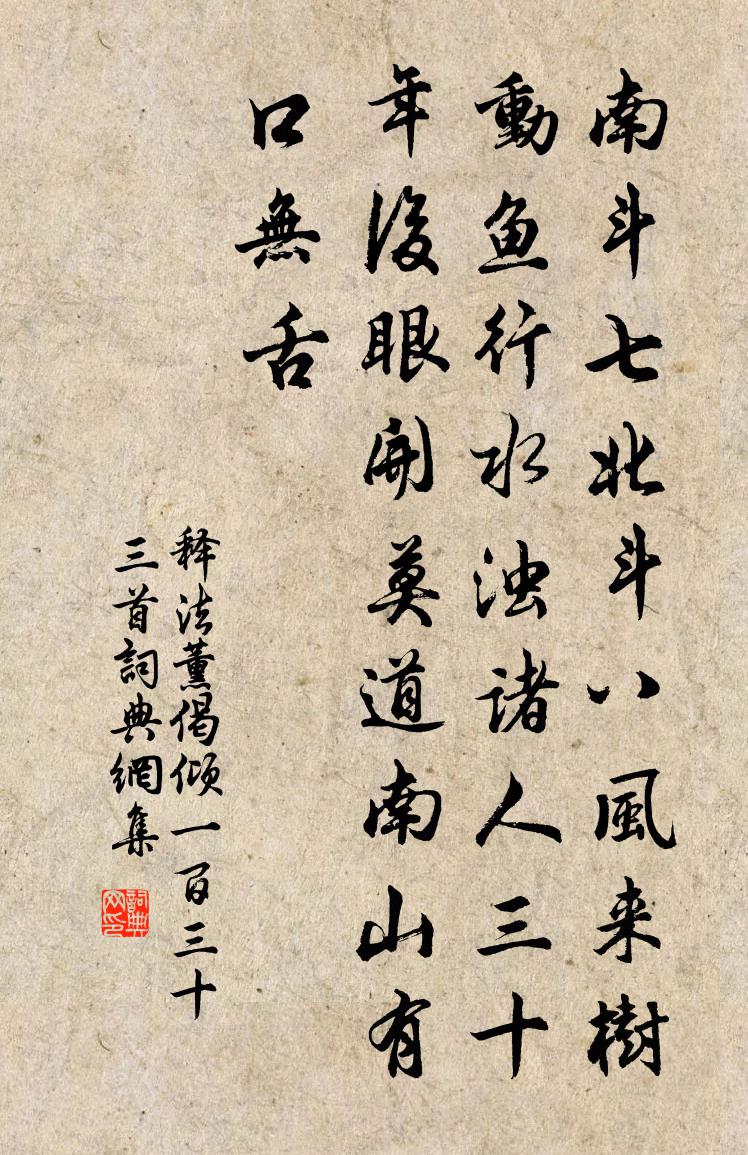 南斗七北斗八風来樹
動魚行水浊諸人三十
年後眼開莫道南山有
口無舌
释法薰偈倾一百三十
三首詞典網集
詞典网印